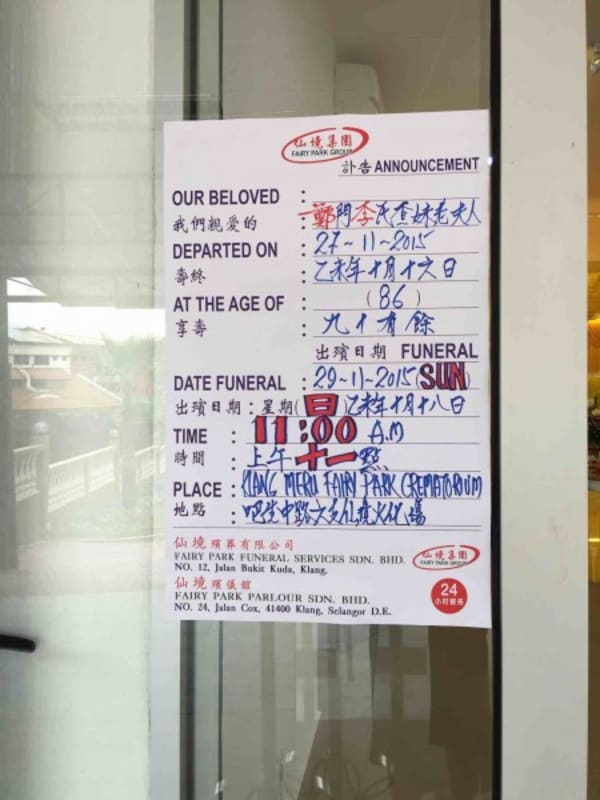 仙境集團
FAIRY PARK GROUP
訃告 ANNOUNCEMENT
OUR BELOVED :
我們親愛的 鄭門李氏查妹老夫人
DEPARTED ON : 27-11-2015
壽終 乙未年十月十六日
AT THE AGE OF : (86)
享壽 九十有餘
出殯日期 FUNERAL
DATE FUNERAL : 29-11-2015 (SUN)
出殯日期 : 星期(日) 乙未年十月十八日
TIME : 11:00 A.M
時間 : 上午十一點
PLACE : KLANG MERU FAIRY PARK CREMATORIUM
地點 : 吧生中路仙境火化場
仙境殯葬有限公司
FAIRY PARK FUNERAL SERVICES SDN. BHD.
NO. 12, Jalan Bukit Kuda, Klang.
仙境集團
FAIRY PARK GROUP
仙境殯儀館
FAIRY PARK PARLOUR SDN. BHD.
NO. 24, Jalan Cox, 41400 Klang, Selangor D.E.
24
小時服務